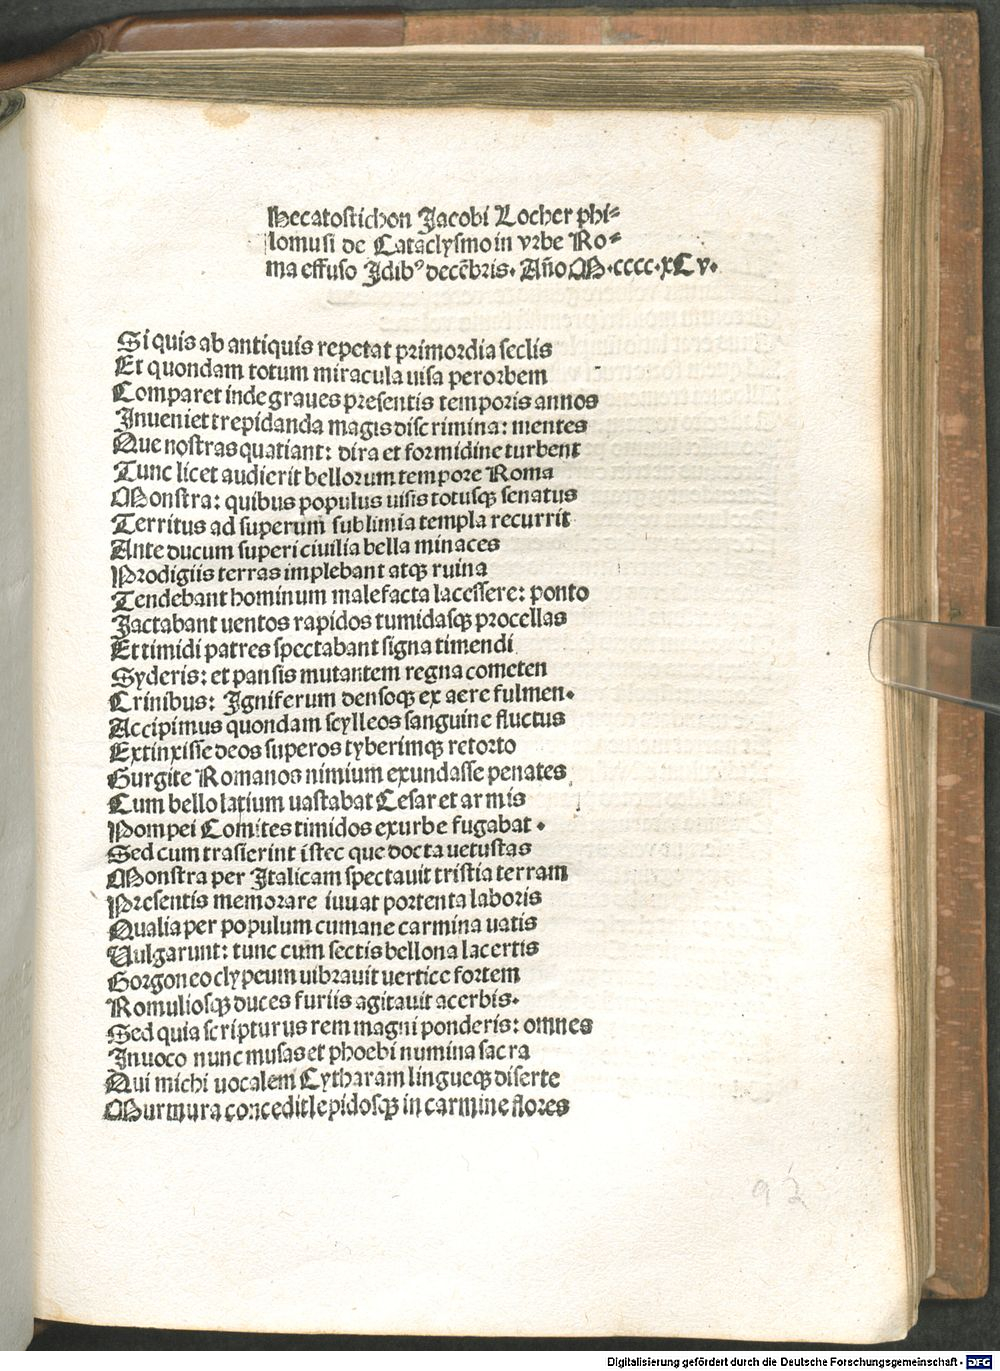 Hecatostichon Jacobi Locher phi⸗
lomusi de Cataclysmo in vrbe Ro⸗
ma effuso Jdibꝰ decēbris. Año M.cccc.xCv.
Si quis ab antiquis repetat primordia seclis
Et quondam totum miracula uisa per orbem
Comparet inde graues presentis temporis annos
Inueniet trepidanda magis discrimina: mentes
Que nostras quatiant: dira et formidine turbent
Tunc licet audierit bellorum tempore Roma
Monstra: quibus populus uisis totusqꝫ senatus
Territus ad superum sublimia templa recurrit
Ante ducum superi ciuilia bella minaces
Prodigiis terras implebant atqꝫ ruina
Tendebant hominum malefacta lacessere: ponto
Jactabant uentos rapidos tumidasqꝫ procellas
Et timidi patres spectabant signa timendi
Syderis: et pansis mutantem regna cometen
Crinibus: Igniferum densoqꝫ ex aere fulmen.
Accipimus quondam scylleos sanguine fluctus
Extinxisse deos superos tyberimqꝫ retorto
Gurgite Romanos nimium exundasse penates
Cum bello latium uastabat Cesar et armis
Pompei Comites timidos ex urbe fugabat.
Sed cum trasierint istec que docta uetustas
Monstra per Italicam spectauit tristia terram
Presentis memorare iuuat portenta laboris
Qualia per populum cumane carmina uatis
Uulgarunt: tunc cum sectis bellona lacertis
Gorgoneo clypeum uibrauit uertice fortem
Romuliosqꝫ duces furiis agitauit acerbis.
Sed quia scripturus rem magni ponderis: omnes
Inuoco nunc musas et phoebi numina sacra
Qui michi uocalem Cytharam lingueqꝫ diserte
Murmura concedit lepidosqꝫ in carmine flores
92
Digitalisierung gefördert durch die Deutsche Forschungsgemeinschaft - DFG